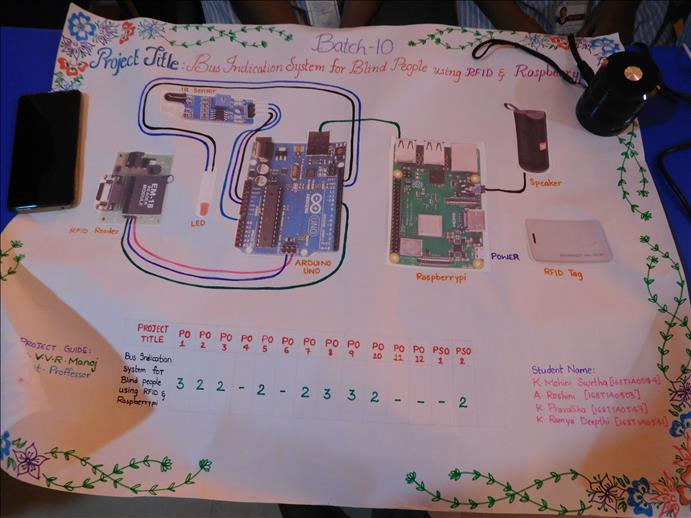 Batch-10
Project Title: Bus Indication System for Blind People using RFID & Raspberry
IR Sensor
EM-18
MODULE
RFID Reader
LED
UNO
ARDUINO
ARDUINO
UNO
Raspberrypi
POWER
Speaker
RFID Tag
PROJECT GUIDE:
V.V.R. Manoj
Proffessor
PROJECT TITLE PO 1 PO 2 PO 3 PO 4 PO 5 PO 6 PO 7 PO 8 PO 9 PO 10 PO 11 PO 12 PSO 1 PSO 2
Bus Indication system for Blind people using RFID & Raspberrypi 3 2 2 - 2 - 2 3 3 2 - - - 2
Student Name:
K. Mohini Swetha
A. Roshini
K. Pravallika
K. Ramya Deepthi